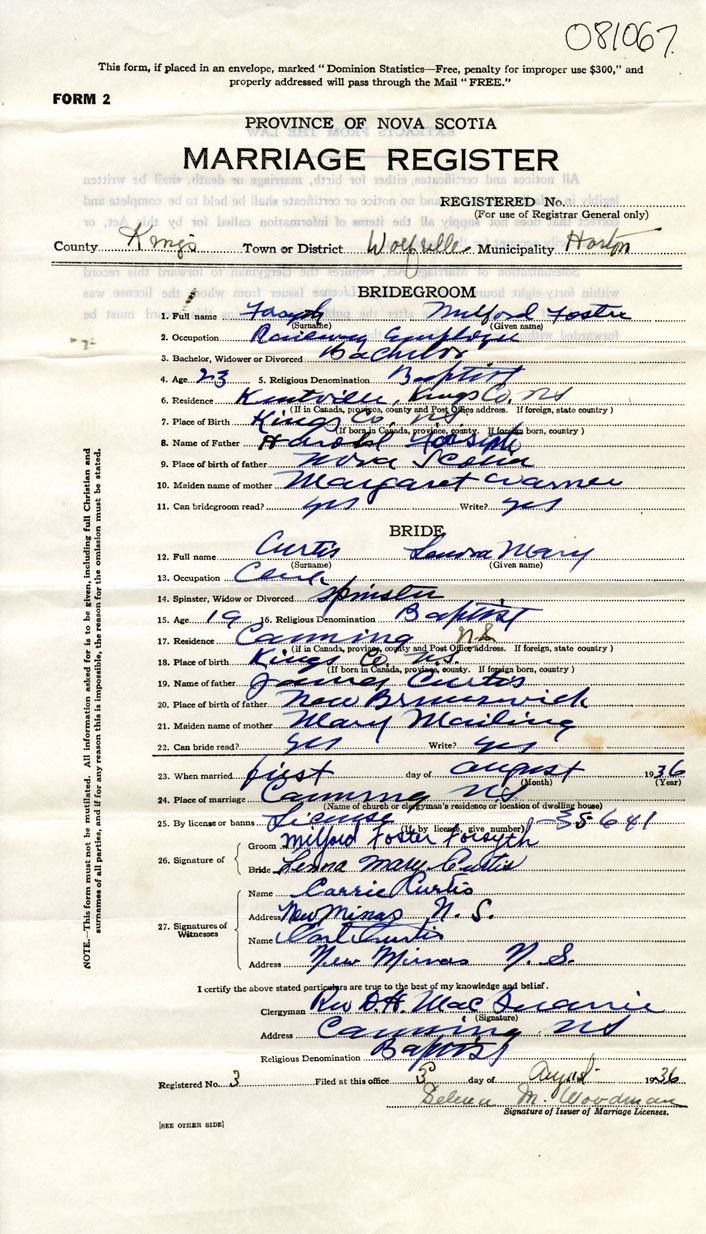 081067
This form, if placed in an envelope, marked "Dominion Statistics—Free, penalty for improper use $300," and
properly addressed will pass through the Mail "FREE."
FORM 2
PROVINCE OF NOVA SCOTIA
MARRIAGE REGISTER
REGISTERED No.
(For use of Registrar General only)
County Kings Town or District Wolfville Municipality Horton
BRIDEGROOM
1. Full name Forsyth Milford Foster
(Surname) (Given name)
2. Occupation Railway Employee
3. Bachelor, Widower or Divorced Bachelor
4. Age 23 5. Religious Denomination Baptist
6. Residence Kentville, Kings Co, NS
(If in Canada, province, county and Post Office address. If foreign, state country)
7. Place of Birth Kings Co, N.S.
(If born in Canada, province, county. If foreign born, country)
8. Name of Father Forsyth
9. Place of birth of father Nova Scotia
10. Maiden name of mother Margaret Warner
11. Can bridegroom read? yes Write? yes
BRIDE
12. Full name Curtis Mary
(Surname) (Given name)
13. Occupation
14. Spinster, Widow or Divorced Spinster
15. Age 19 16. Religious Denomination Baptist
17. Residence Canning N.S.
(If in Canada, province, county and Post Office address. If foreign, state country)
18. Place of birth Kings Co. N.S.
(If born in Canada, province, county. If foreign born, country)
19. Name of father James Curtis
20. Place of birth of father New Brunswick
21. Maiden name of mother Mary Mailing
22. Can bride read? yes Write? yes
23. When married first day of August 1936
(Month) (Year)
24. Place of marriage Canning NS
(Name of church or clergyman's residence or location of dwelling house)
25. By license or banns License 35641
(If by license, give number)
26. Signature of
Groom Milford Foster Forsyth
Bride Lenna Mary Curtis
27. Signatures of Witnesses
Name Carrie Curtis
Address New Minas N. S.
Name Carl Curtis
Address New Minas N. S.
I certify the above stated particulars are true to the best of my knowledge and belief.
Clergyman Rev D. H. Mac
(Signature)
Address Canning NS
Religious Denomination Baptist
Registered No. 3 Filed at this office 3 day of August 1936
M. Woodman
Signature of Issuer of Marriage Licenses.
[SEE OTHER SIDE]
NOTE.—This form must not be mutilated. All information asked for is to be given, including full Christian and
surnames of all parties, and if for any reason this is impossible, the reason for the omission must be stated.